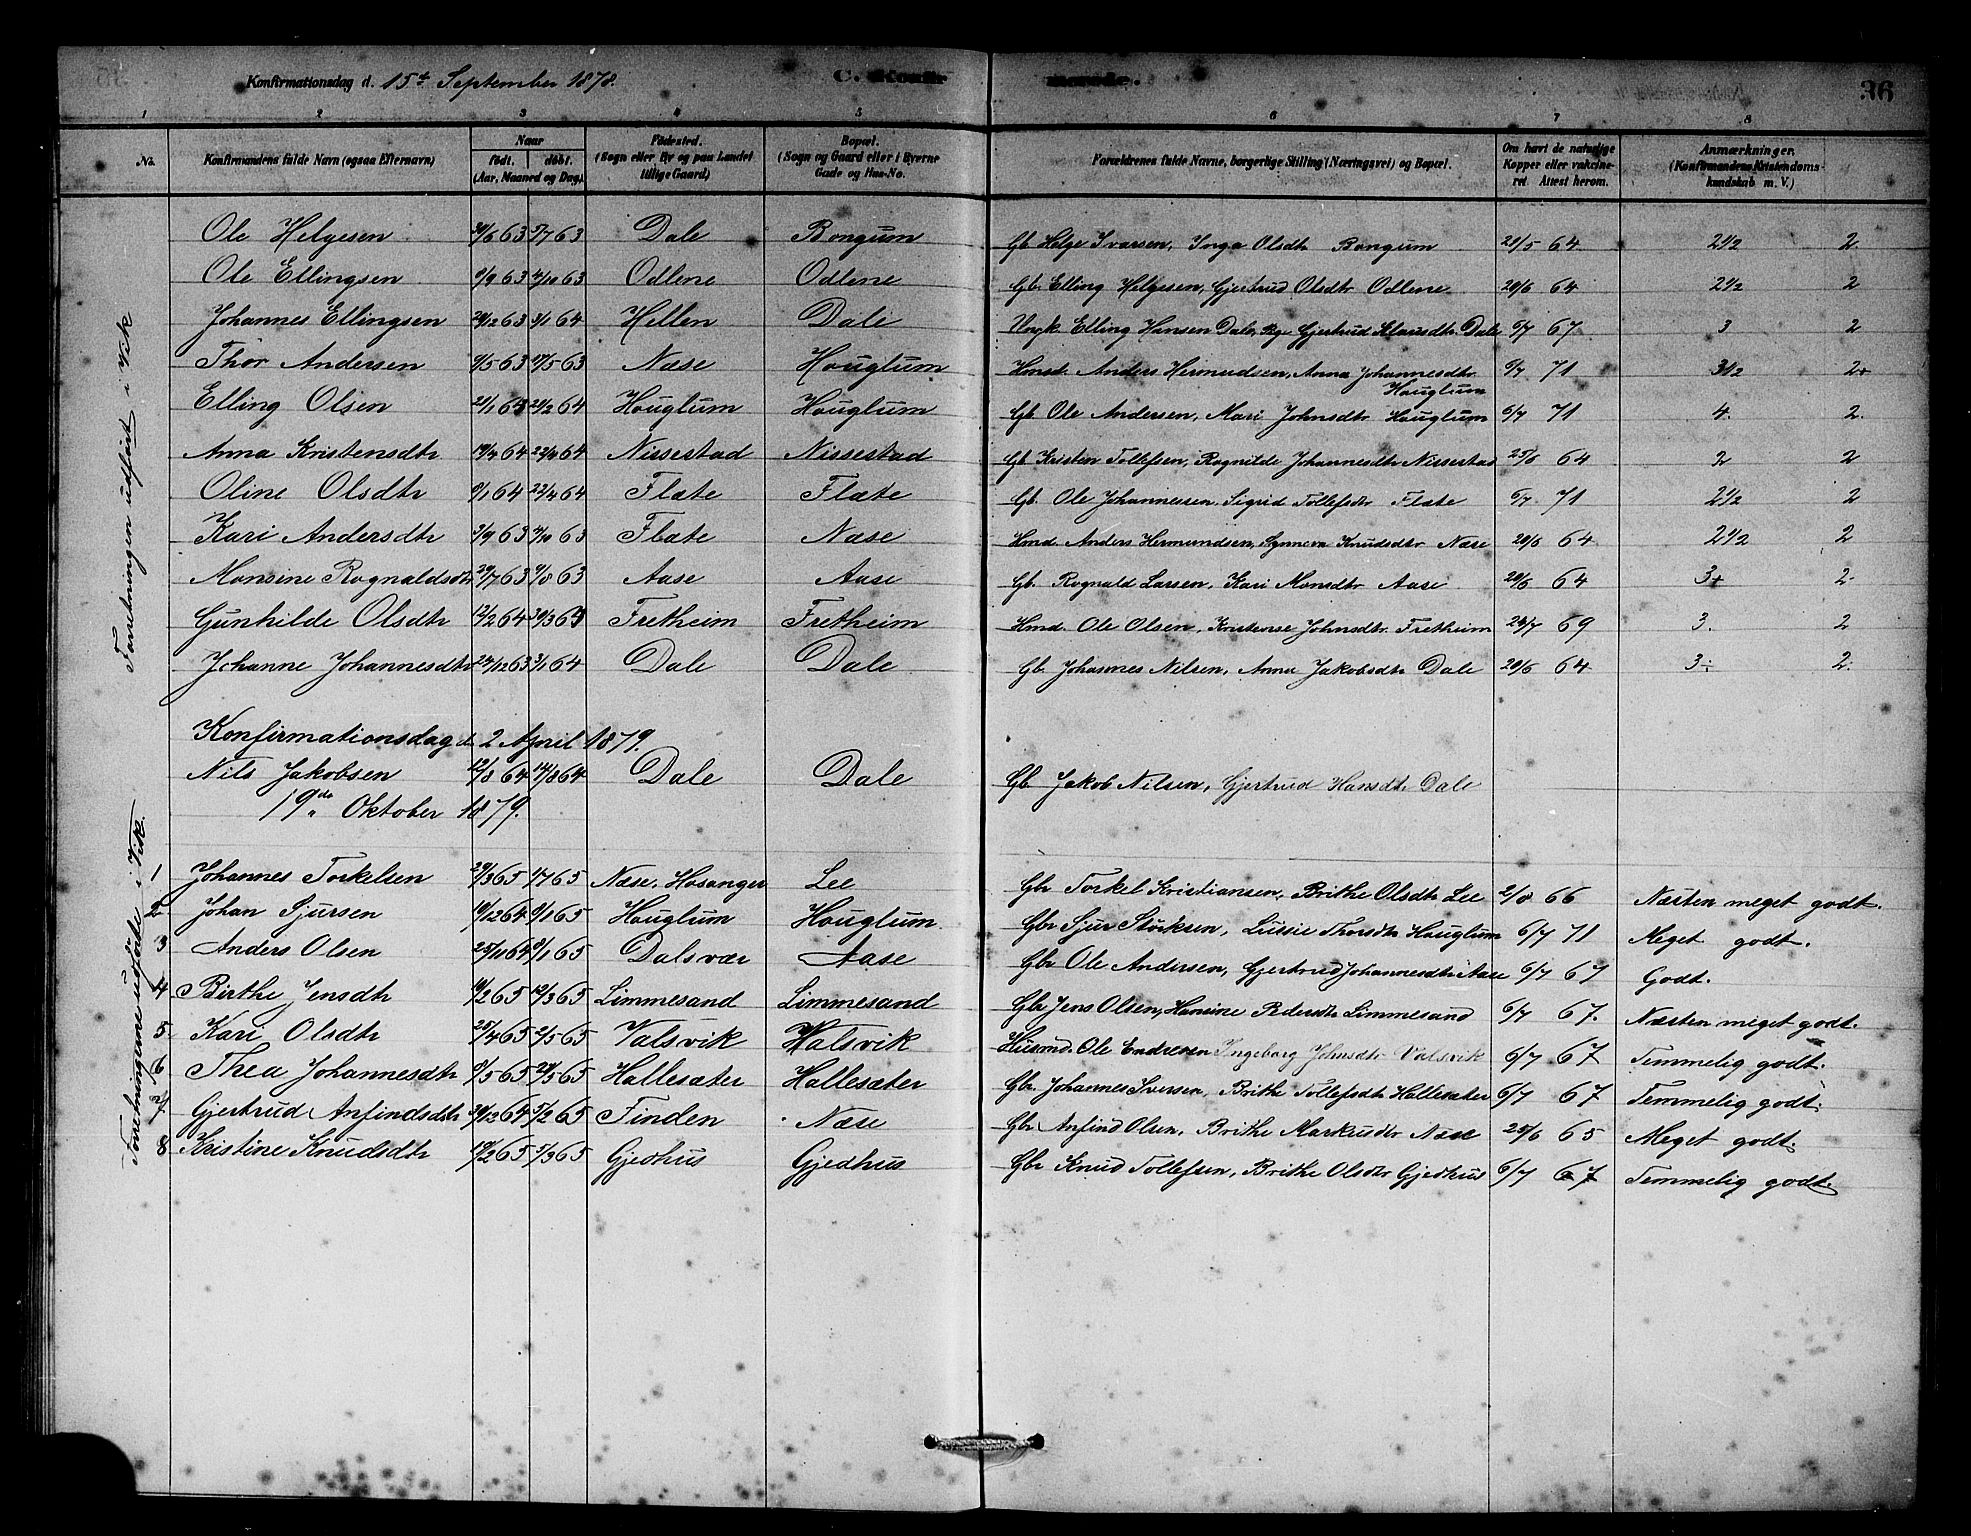 Konfirmationsdag d. 15de September 1878. C. Konfirmerede. 36
1 2 3 4 5 6 7 8
No. Konfirmandens fulde Navn (ogsaa Efternavn) Naar født. døbt. (Aar, Maaned og Dag) Fødested. (Sogn eller By og paa Landet tillige Gaard) Bopæl. (Sogn og Gaard eller i Byerne Gade og Hus-No. Forældrenes fulde Navne, borgerlige Stilling (Næringsvei) og Bopæl. Om havt de naturlige Kopper eller vakcineret. Attest herom. Anmærkninger. (Konfirmandens Kristendomskundskab m. V.)
Forretningen udført i Vik
Ole Helgesen 63 5/7 63 Dale Bongum Gb. Helge Ivarsen, Inga Olsdtr Bongum 64 2 1/2 2
Ole Ellingsen 63 4/10 63 Odlene Odlene Gb. Elling Helgesen, Gjertrud Olsdtr Odlene 20/6 64 2 1/2 2
Johannes Ellingsen 63 3/1 64 Hellen Dale Ungk. Elling Hansen Dale, Pg. Gjertrud Klausdtr. Dale 6/7 67 3 2
Thor Andersen 9/5 63 17/5 63 Nase Houglum Hmd. Anders Hermudsen, Anna Johannesdtr Houglum 6/7 71 3 1/2 2+
Elling Olsen 64 64 Houglum Houglum Gb. Ole Andersen, Mari Johnsdtr Houglum 6/7 71 4. 2.
Anna Kristensdtr 64 64 Nissestad Nissestad Gb. Kristen Tollefsen, Rognilde Johannesdtr Nissestad 64 2 2
Oline Olsdtr 64 64 Flate Flate Gb. Ole Johannessen Sigrid Tollefsdtr Flate 6/7 71 2 1/2 2
Kari Andersdtr 3/9 63 4/10 63 Flate Næse Hmd. Anders Hermundsen, Synneva Knudsdtr Næse 20/6 64 2 1/2 2
Monsine Rognaldsdtr 63 63 Aase Aase Gb. Rognald Larsen, Kari Monsdtr Aase 20/6 64 3+ 2.
Gunhilde Olsdtr 12/2 64 64 Fretheim Fretheim Hmd. Ole Olsen, Kristense Johnsdtr. Fretheim 69 3. 2
Johanne Johannesdtr 63 3/1 64 Dale Dale Gb. Johannes Nilsen, Anna Jakobsdtr Dale 20/6 64 3÷ 2.
Konfirmationsdag d. 2 April 1879.
Nils Jakobsen 12/8 64 14/8 64 Dale Dale Gb Jakob Nilsen, Gjertrud Hansdtr Dale
19de Oktober 1879.
Forretningerne udførte i Vik.
1 Johannes Torkelsen 29/3 65 65 Næse, Hosanger Lee Gbr Torkel Kristiansen, Brithe Olsdtr Lee 2/8 66 Næsten meget godt.
2 Johan Sjursen 64 65 Houglum Houglum. Gbr Sjur Størksen, Lussie Thorsdtr Houglum 6/7 71 Meget godt.
3 Anders Olsen 64 65 Dalsvær Aase Gbr Ole Andersen, Gjertrud Johannesdtr Aase 6/7 67 Godt.
4 Birthe Jensdtr 65 65 Limmesand Limmesand Gbr Jens Olsen, Hansine Pedersdtr Limmesand 6/7 67. Næsten meget godt.
5. Kari Olsdtr 65 2/5 65 Valsvik Halsvik Husmd. Ole Endresen Ingeborg Johnsdtr Valsvik 6/7 67 Temmelig godt.
6 Thea Johannesdtr 65 65 Hallesæter Hallesæter Gbr. Johannes Iversen, Brithe Tollefsdtr Hallesæter 6/7 67 Temmelig godt.
7. Gjertrud Anfindsdtr 64 65 Tinden Næse Gbr. Anfind Olsen, Brithe Markusdtr Næse 65 Meget godt.
8 Kristine Knudsdtr 65 65 Gjedhus Gjedhus Gbr Knud Tollefsen, Brithe Olsdtr Gjedhus 6/7 67 Temmelig godt.